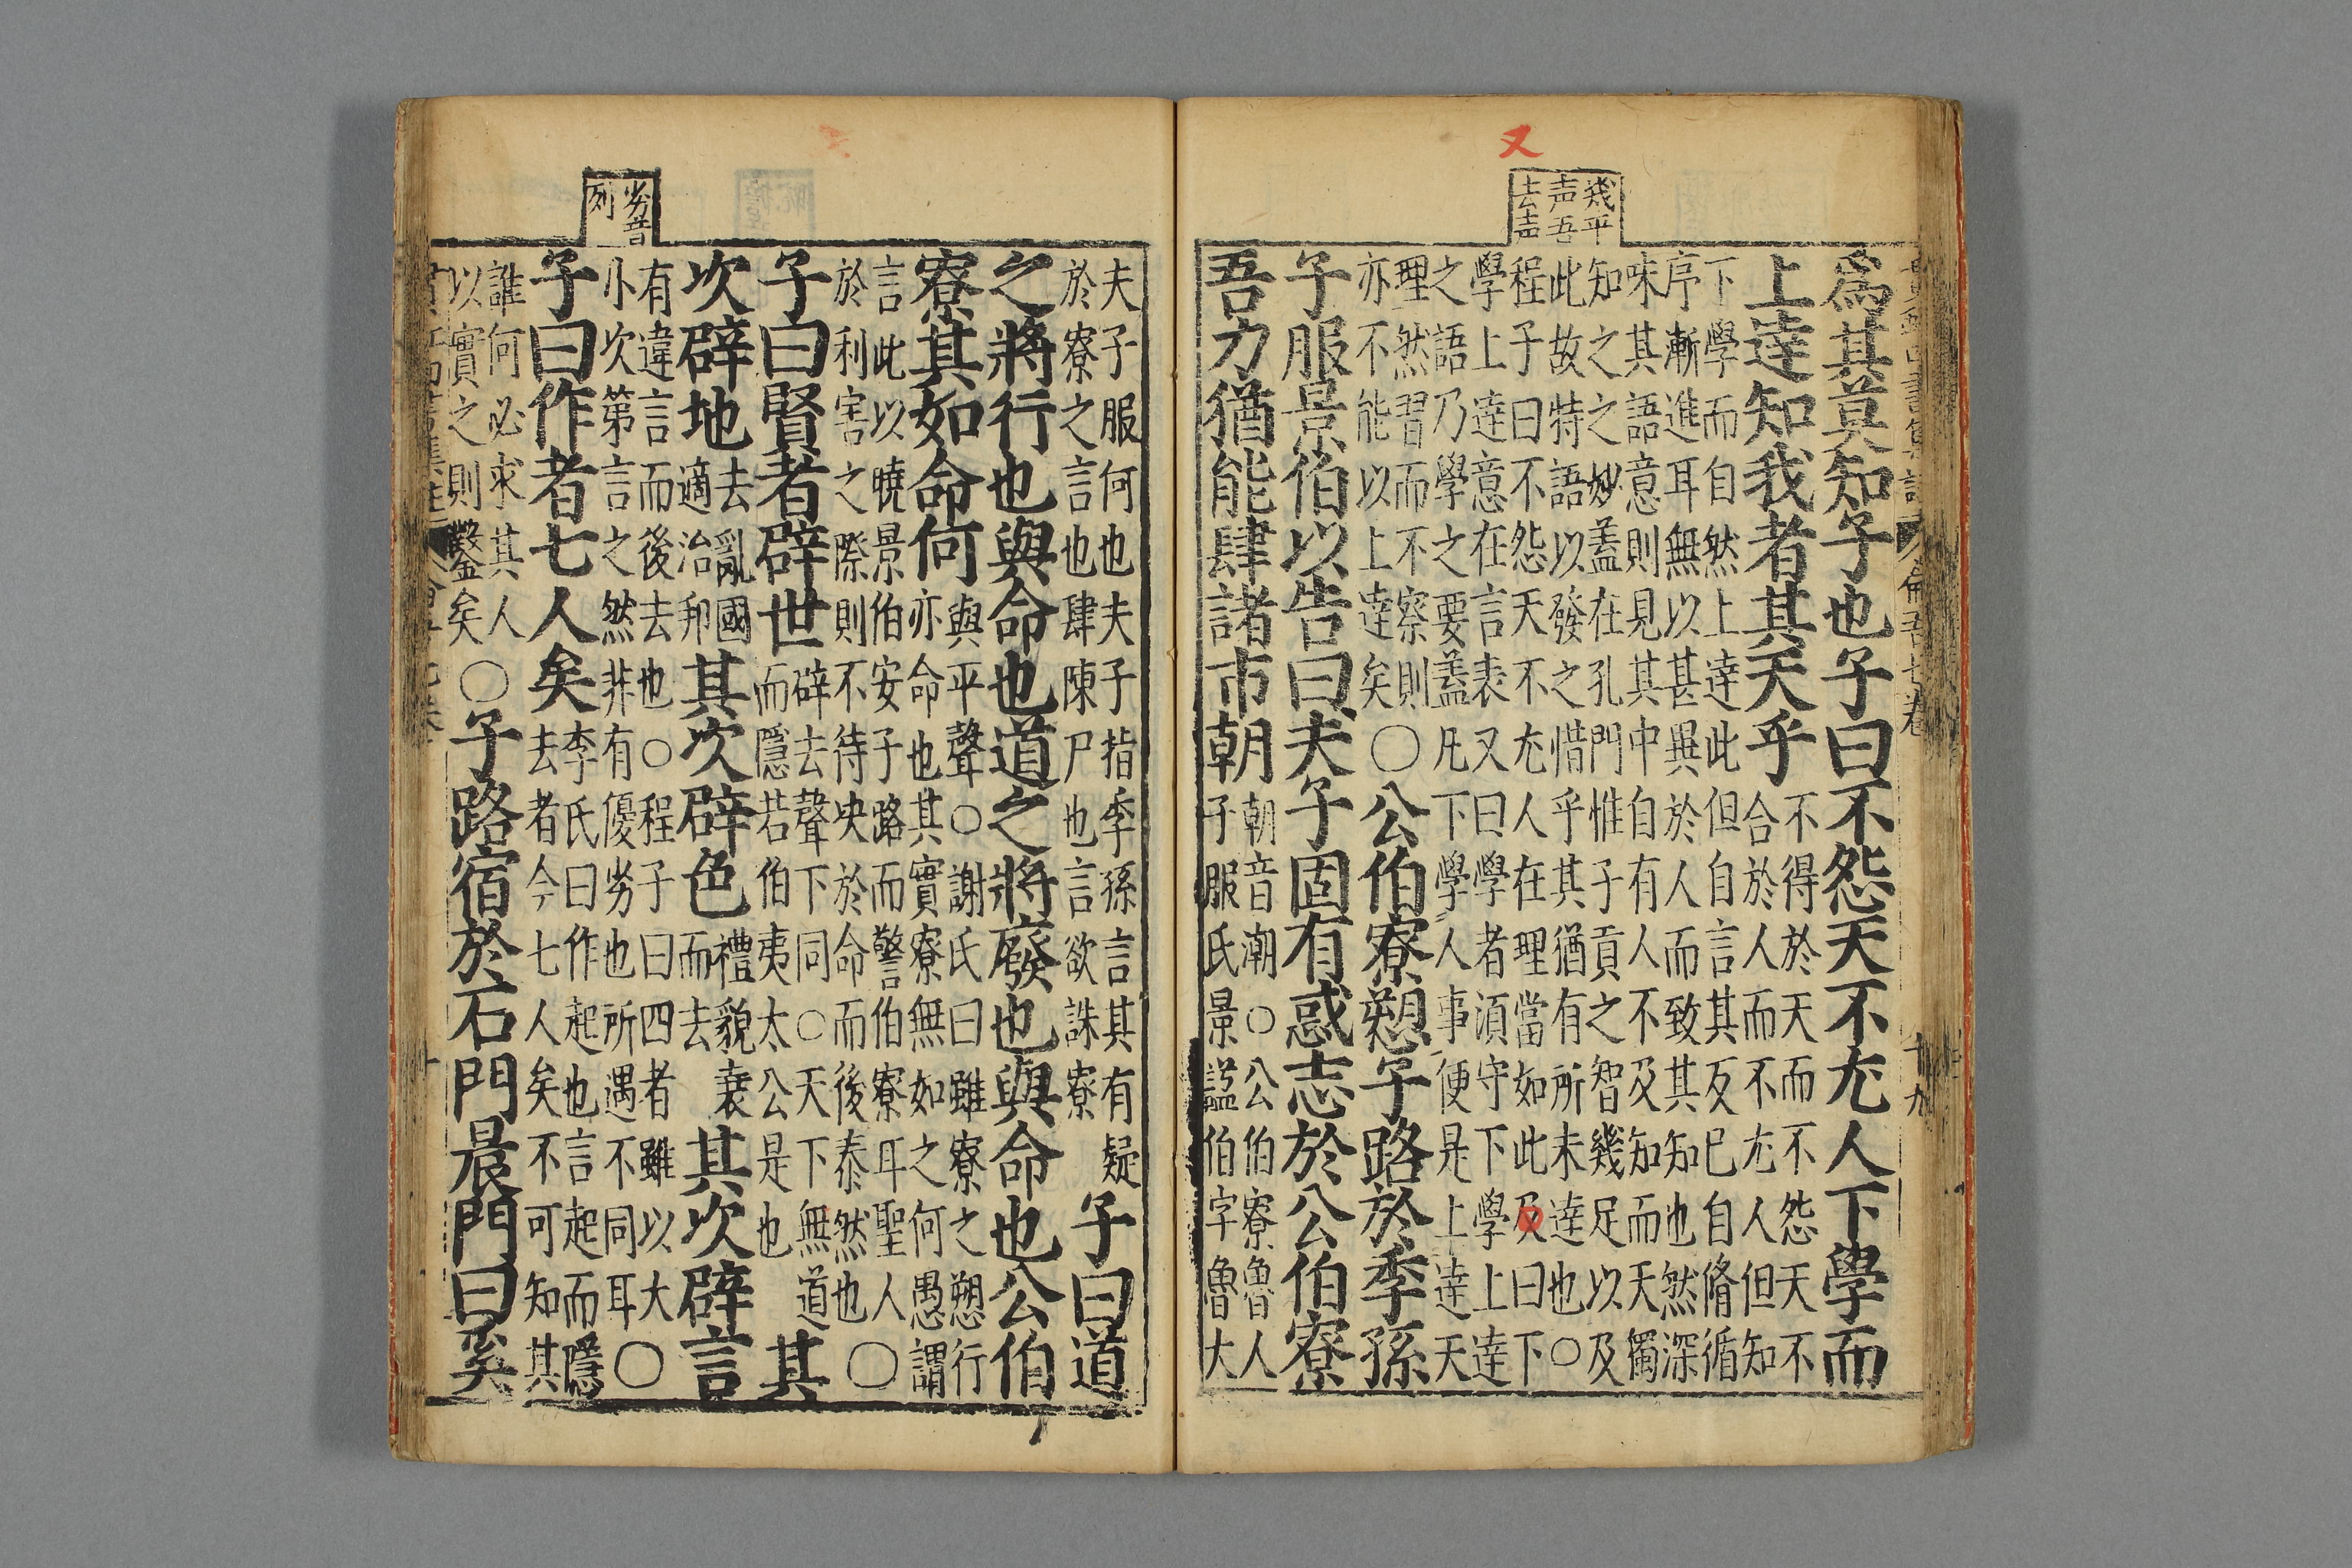 又
幾平
声吾
去声
爲其莫知子也子曰不怨天不尤人下學而
上達知我者其天乎
不得於天而不怨天不
合於人而不尤人但知
下學而自然上達此但自言其反已自脩循
序漸進耳無以甚異於人而致其知也然深
味其語意則見其中自有人不及知而天獨
知之之妙蓋在孔門惟子貢之智幾足以及
此故特語以發之惜乎其猶有所未達也○
程子曰不怨天不尤人在理當如此及曰下
學上達意在言表又曰學者須守下學上達
之語乃學之要蓋凡下學人事便是上達天
理然習而不察則
亦不能以上達矣
○公伯寮愬子路於季孫
子服景伯以告曰夫子固有惑志於公伯寮
吾力猶能肆諸市朝
朝音潮○公伯寮魯人
子服氏景諡伯字魯大
劣音
列
夫子服何也夫子指季孫言其有疑
於寮之言也肆陳尸也言欲誅寮
子曰道
之將行也與命也道之將廢也與命也公伯
寮其如命何
與平聲○謝氏曰雖寮之愬行
亦命也其實寮無如之何愚謂
言此以曉景伯安子路而警伯寮耳聖人
於利害之際則不待决於命而後泰然也
○
子曰賢者辟世
辟去聲下同○天下無道
而隱若伯夷太公是也
其
次辟地
去亂國
適治邦
其次辟色
禮貌衰
而去
其次辟言
有違言而後去也○程子曰四者雖以大
小次第言之然非有優劣也所遇不同耳
○
子曰作者七人矣
李氏曰作起也言起而隱
去者今七人矣不可知其
誰何必求其人
以實之則鑿矣
○子路宿於石門晨門曰奚